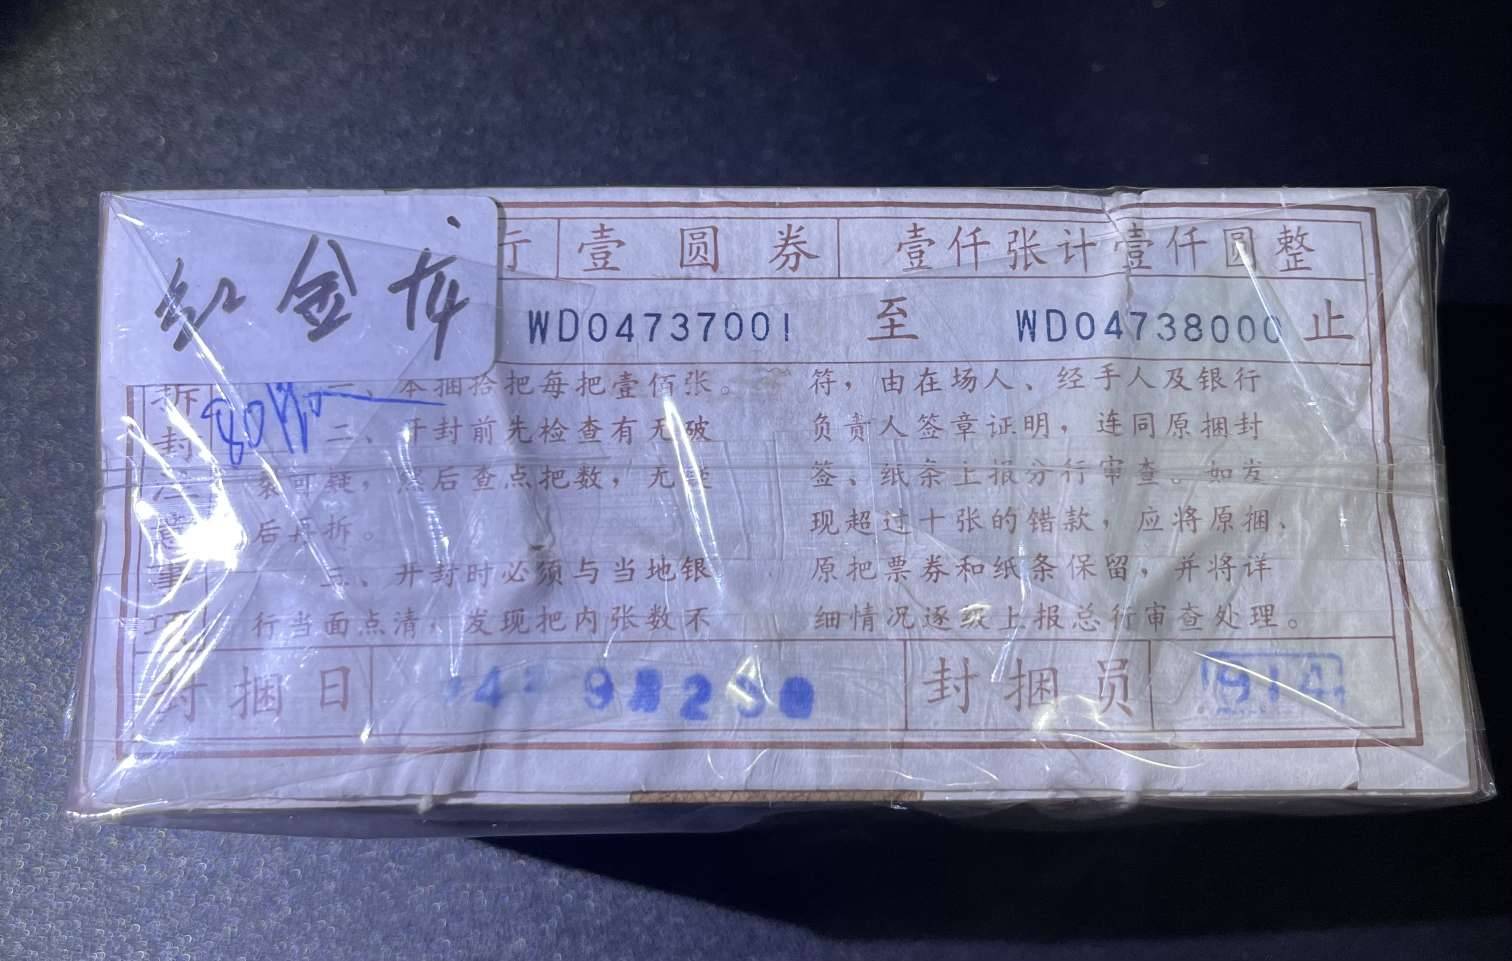 红金龙
行 壹圆券 壹仟张计壹仟圆整
WD04737001 至 WD04738000 止
拆封注意事项
一、本捆拾把每把壹佰张。
二、开封前先检查有无破
裂可疑，然后查点把数，无疑
后再拆。
三、开封时必须与当地银
行当面点清，发现把内张数不
符，由在场人、经手人及银行
负责人签章证明，连同原捆封
签、纸条上报分行审查。如发
现超过十张的错款，应将原捆、
原把票券和纸条保留，并将详
细情况逐级上报总行审查处理。
封捆日
封捆员 914